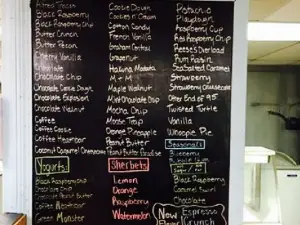 Black Raspberry
Black Raspberry Chip
Butter Crunch
Butter Pecan
Cherry Vanilla
Chocolate
Chocolate Chip
Chocolate Cookie Dough
Chocolate Explosion
Chocolate Walnut
Coffee
Coffee Cookie
Coffee Heathbar
Coconut Caramel
Yogurts
Black Raspberry Chip
Chocolate Chip
Peanut Butter
Coffee Heathbar
Green Monster
Cookie Dough
Cookies n' Cream
Cotton Candy
French Vanilla
Graham Central
Grapenut
Hakuna Matata
M+M
Maple Walnut
Mint Chocolate Chip
Mocha Chip
Moose Trap
Orange Pineapple
Peanut Butter
Sherbets
Lemon
Orange
Raspberry
Watermelon
Pistachio
Playdough
Raspberry Cup
Red Raspberry Chip
Reese's Overload
Rum Raisin
Sea Salted Caramel
Strawberry
Strawberry Cheesecake
Other End of 95
Twisted Turtle
Vanilla
Whoopie Pie
Seasonals
Blueberry
Black Raspberry
Caramel Swirl
Chocolate
New Espresso
Crunch